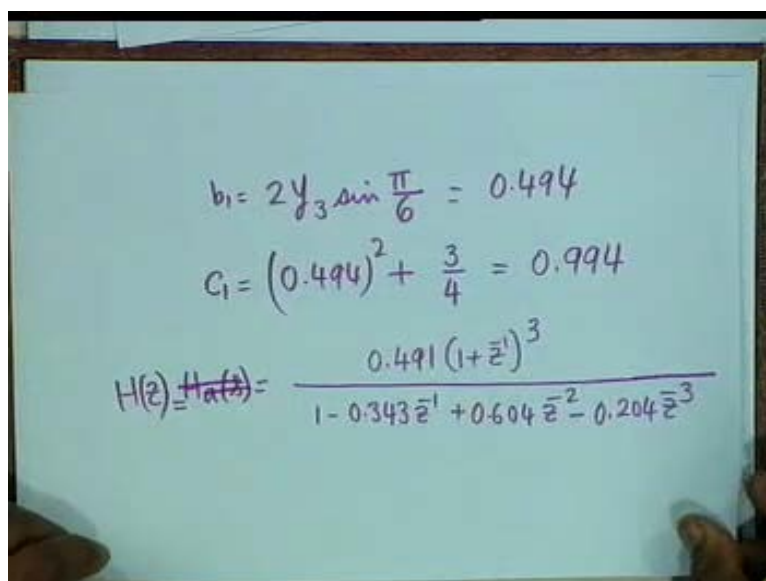 b₁ = 2y₃ sin π/6 = 0.494
C₁ = (0.494)² + 3/4 = 0.994
H(z) = H̶a̶(̶s̶)̶ = 0.491 (1 + z̄¹)³ / 1 - 0.343 z̄¹ + 0.604 z̄² - 0.204 z̄³